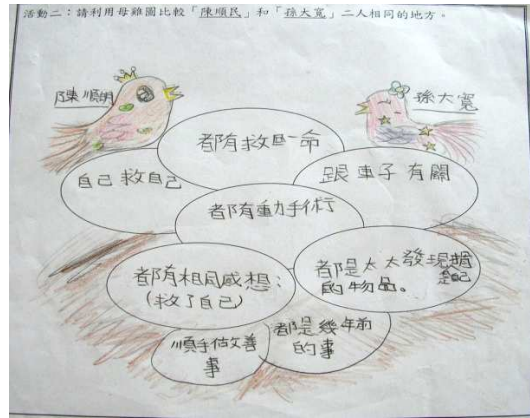 活動二：請利用母雞圖比較「陳順民」和「孫大寬」二人相同的地方。
陳順明
孫大寬
都有救回一命
自己救自己
跟車子有關
都有動手術
都有相同感想：
(救了自己)
都是太太發現
的物品。
順手做善
事
都是幾年前
的事